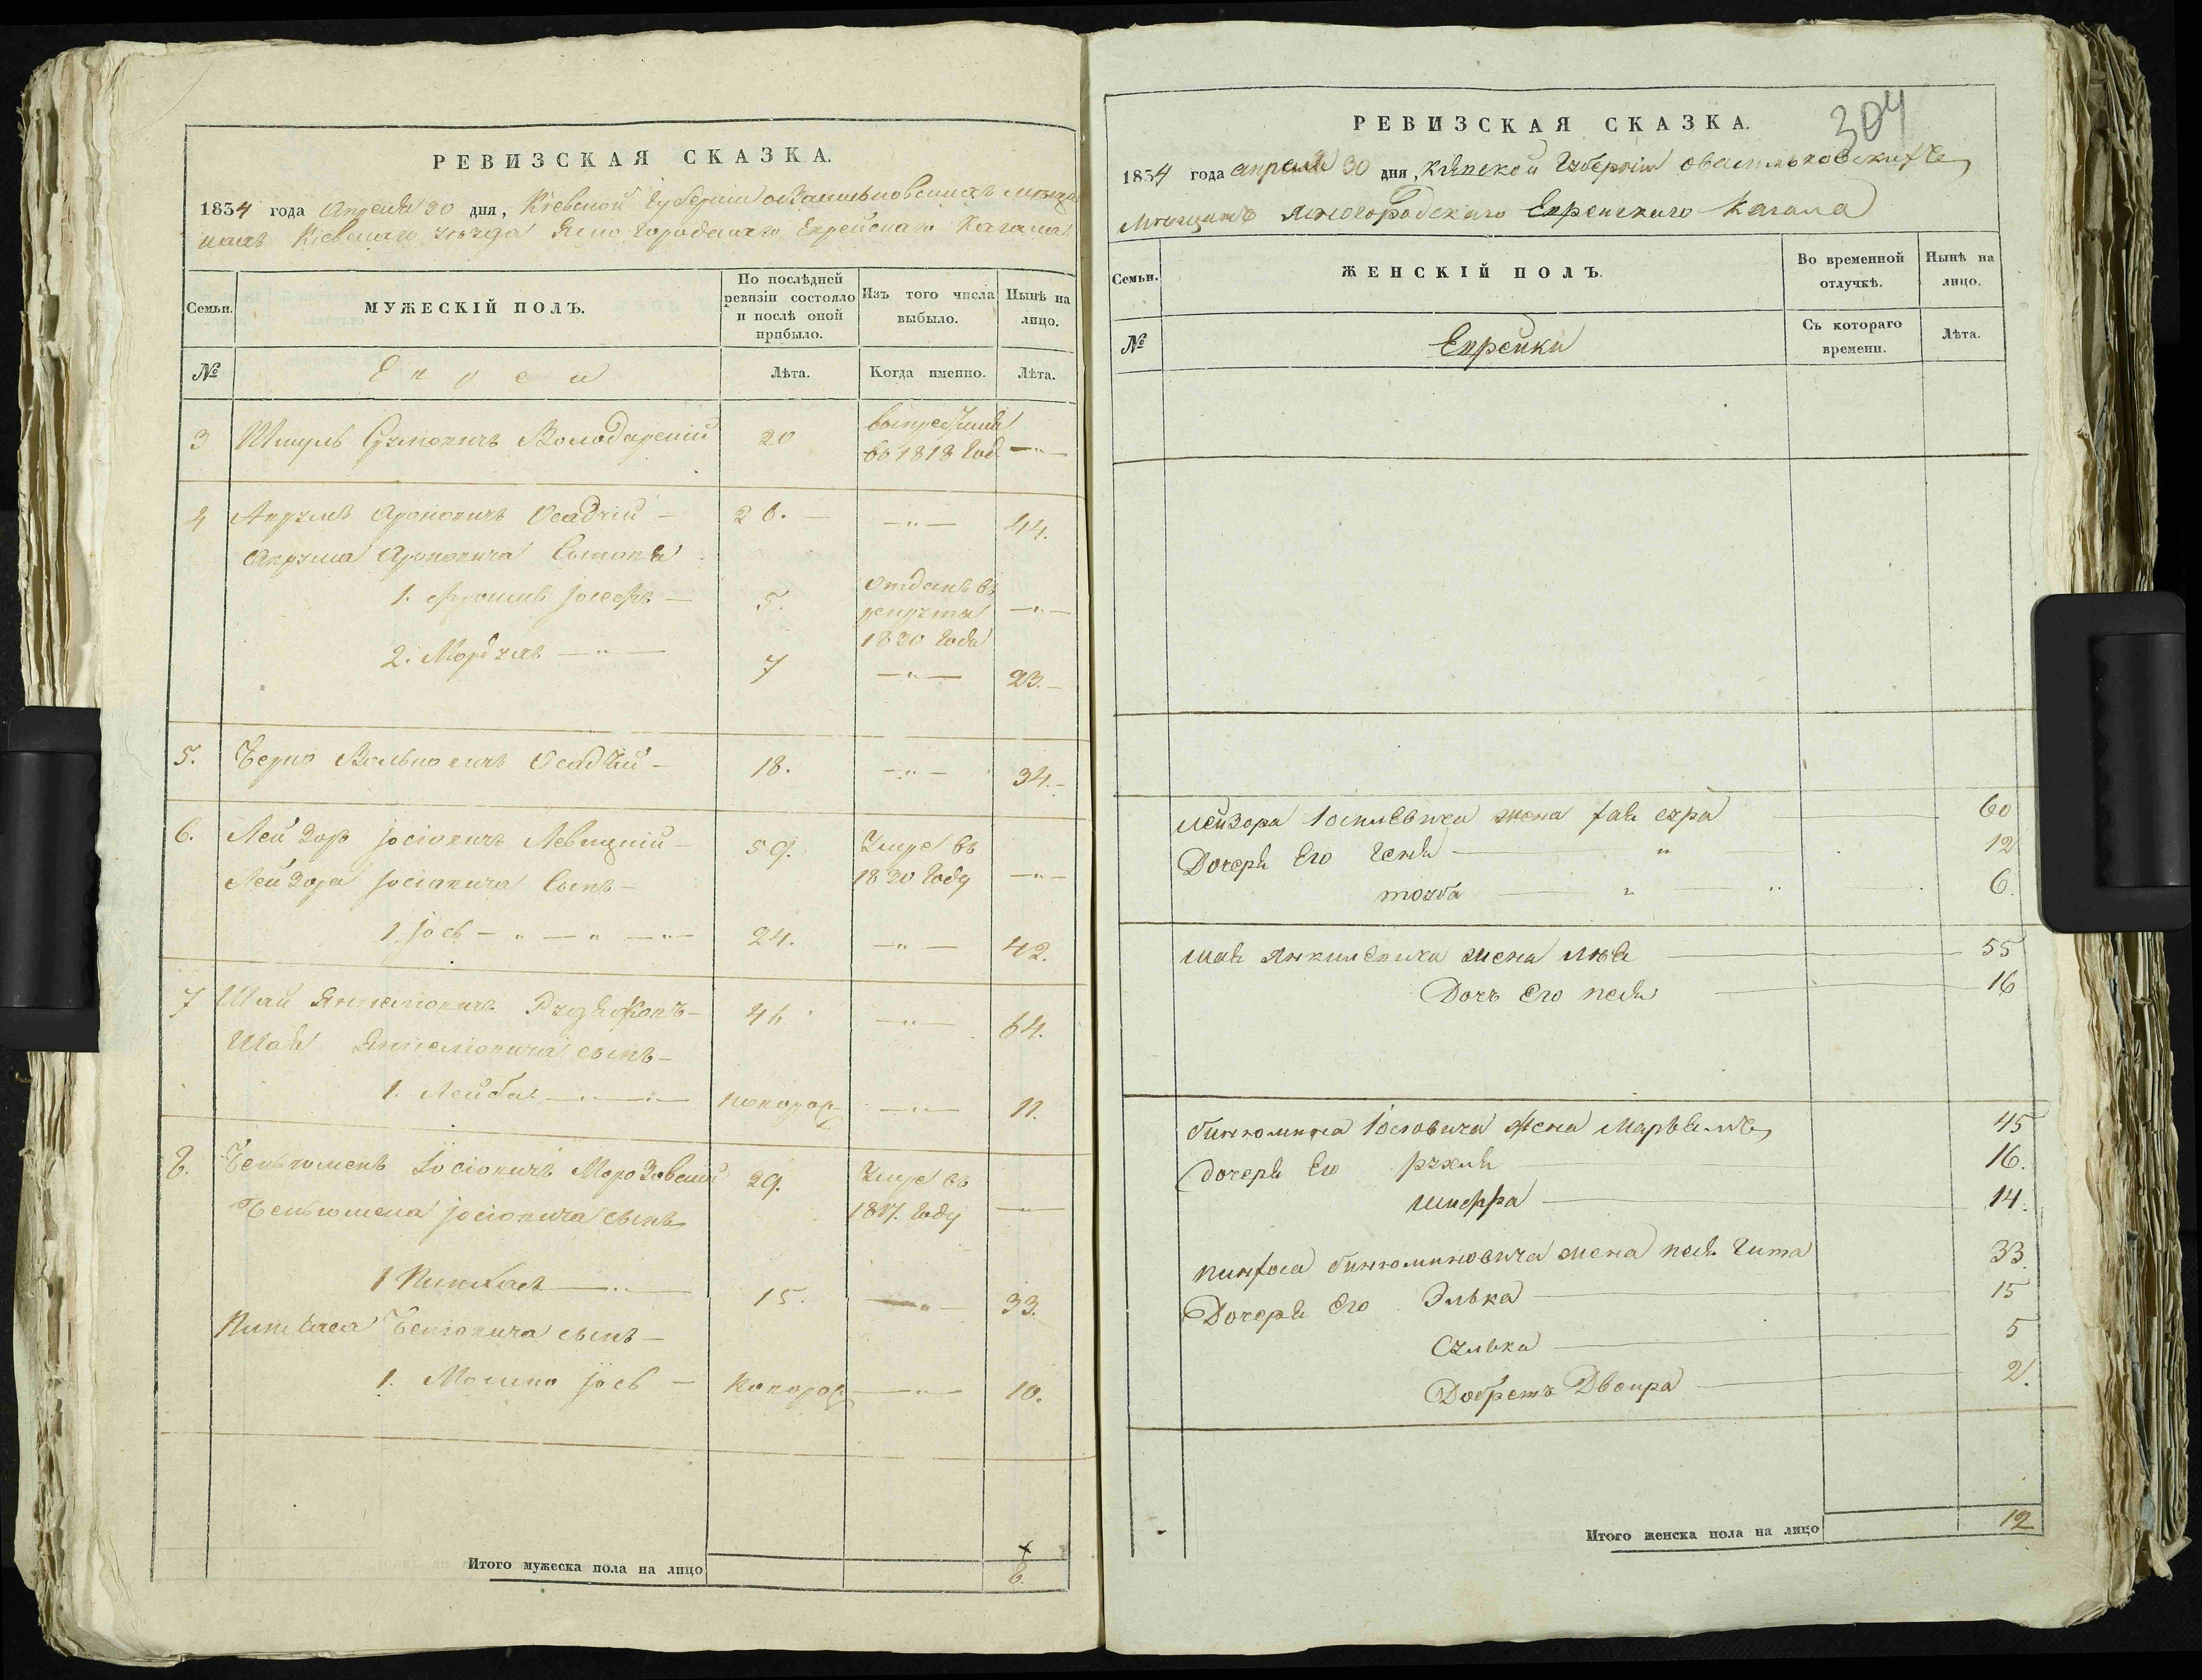 РЕВИЗСКАЯ СКАЗКА.
1834 года Апреля 30 дня, Кіевской Губерніи о Васильковскихъ мѣща
нахъ Кіевскаго уѣзда Ясногородскаго Еврейскаго Кагала
Семьи.
МУЖЕСКІЙ ПОЛЪ.
По послѣдней ревизіи состояло и послѣ оной прибыло.
Изъ того числа выбыло.
Нынѣ на лицо.
№
Евреи
Лѣта.
Когда именно.
Лѣта.
3 Шмуль Володарскій 20
въ 1818 год —"—
4 Аврумъ Ароновичъ Осадчій — 26. — —"— 44.
Аврума Ароновича Сыновья
1. Іосефъ — 5. Отданъ въ рекрута 1830 года —"—
2. Мордухъ —"— 7 —"— 23.—
5. Берко Вольковичъ Осадчій — 18. —"— 34.—
6. Лейзоръ Іосіовичъ Левицкій — 59. Умре въ 1820 году —"—
Лейзора Іосіовича Сынъ —
1. Іось —"—"—"— 24. —"— 42.
7 Шай Янкелиовичъ — 46. —"— 64.
Шаи Янкелиовича сынъ —
1. Лейба — новорож —"— 11.
8. Беньюменъ Іосіовичъ Морозовский 29. Умре въ 1817. году —"—
Беньюмена Іосіовича сынъ
1 Пинхасъ —"— 15. —"— 33.
Пинхаса Бениовича сынъ —
1. Мошко Іось — новорож —"— 10.
Итого мужеска пола на лицо 6.
304
РЕВИЗСКАЯ СКАЗКА.
1834 года апреля 30 дня, Кіевской Губерніи о Васильковскихъ
Мѣщанъ Ясногородскаго Еврейскаго Кагала
Семьи.
ЖЕНСКІЙ ПОЛЪ.
Во временной отлучкѣ.
Нынѣ на лицо.
№
Еврейки
Съ котораго времени.
Лѣта.
Лейзора жена 60
Дочери Его Геня — " 12
тоуба — " — " 6.
Шаи Янкилевича жена 55
Дочь Его песя 16
Бинюмина Іосіовича жена 45
Дочери Его рухля 16.
шифра 14.
Пинхоса Бинюминовича жена песя Гита 33.
Дочери Его Элька 15
Сулька 5
Двойра 2.
Итого женска пола на лицо 12